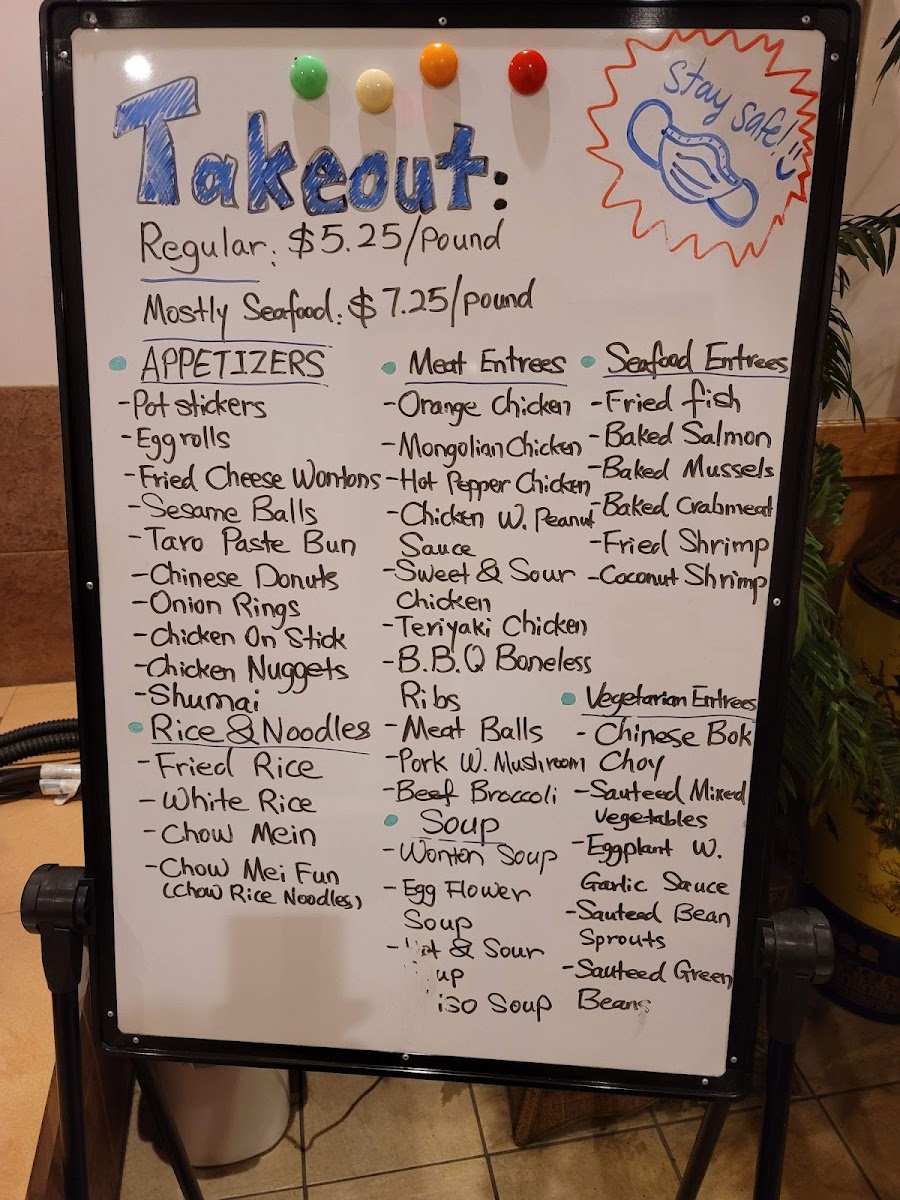 Takeout:
stay safe!
Regular: $5.25/Pound
Mostly Seafood: $7.25/pound
APPETIZERS
-Pot stickers
-Eggrolls
-Fried Cheese Wontons
-Sesame Balls
-Taro Paste Bun
-Chinese Donuts
-Onion Rings
-Chicken On Stick
-Chicken Nuggets
-Shumai
Rice & Noodles
-Fried Rice
-White Rice
-Chow Mein
-Chow Mei Fun
(Chow Rice Noodles)
Meat Entrees
-Orange Chicken
-Mongolian Chicken
-Hot Pepper Chicken
-Chicken W. Peanut
Sauce
-Sweet & Sour
Chicken
-Teriyaki Chicken
-B.B.Q Boneless
Ribs
-Meat Balls
-Pork W. Mushroom
-Beef Broccoli
Soup
-Wonton Soup
-Egg Flower
Soup
-& Sour
Soup
Seafood Entrees
-Fried fish
-Baked Salmon
-Baked Mussels
-Baked Crabmeat
-Fried Shrimp
-Coconut Shrimp
Vegetarian Entrees
-Chinese Bok
Choy
-Sauteed Mixed
Vegetables
-Eggplant W.
Garlic Sauce
-Sauteed Bean
Sprouts
-Sauteed Green
Beans